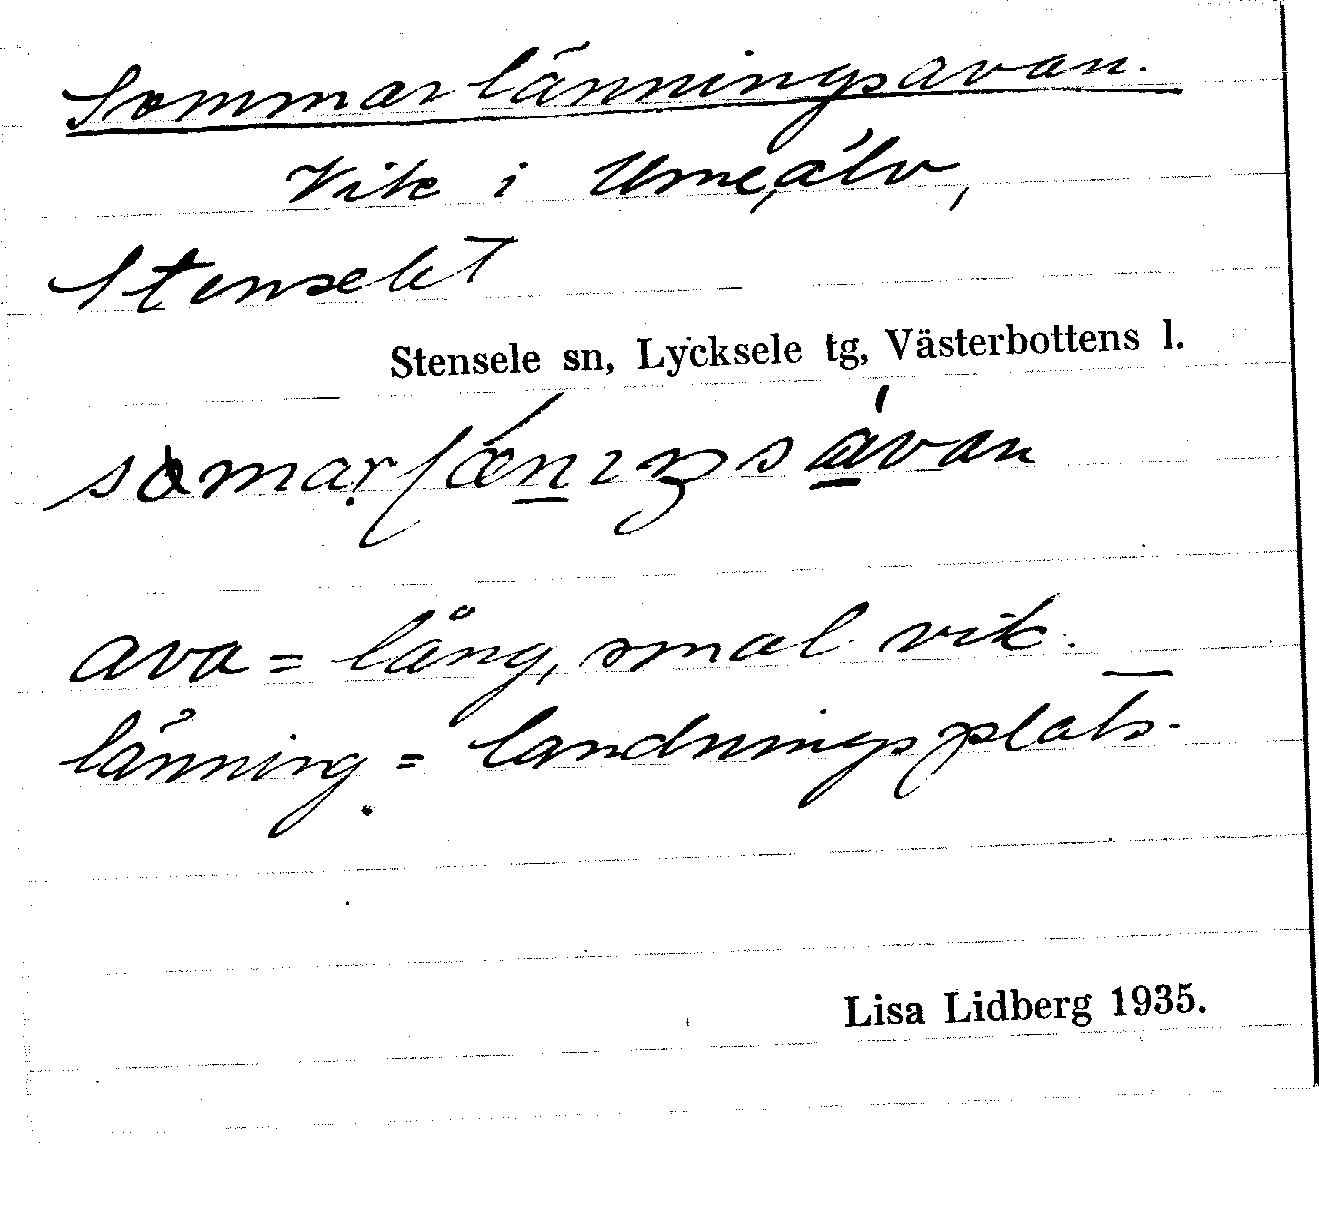 Sommarlänningsavan.
Vik i Umeälv,
Stensele
Stensele sn, Lycksele tg, Västerbottens l.
ava = lång, smal vik.
länning = landningsplats.
Lisa Lidberg 1935.